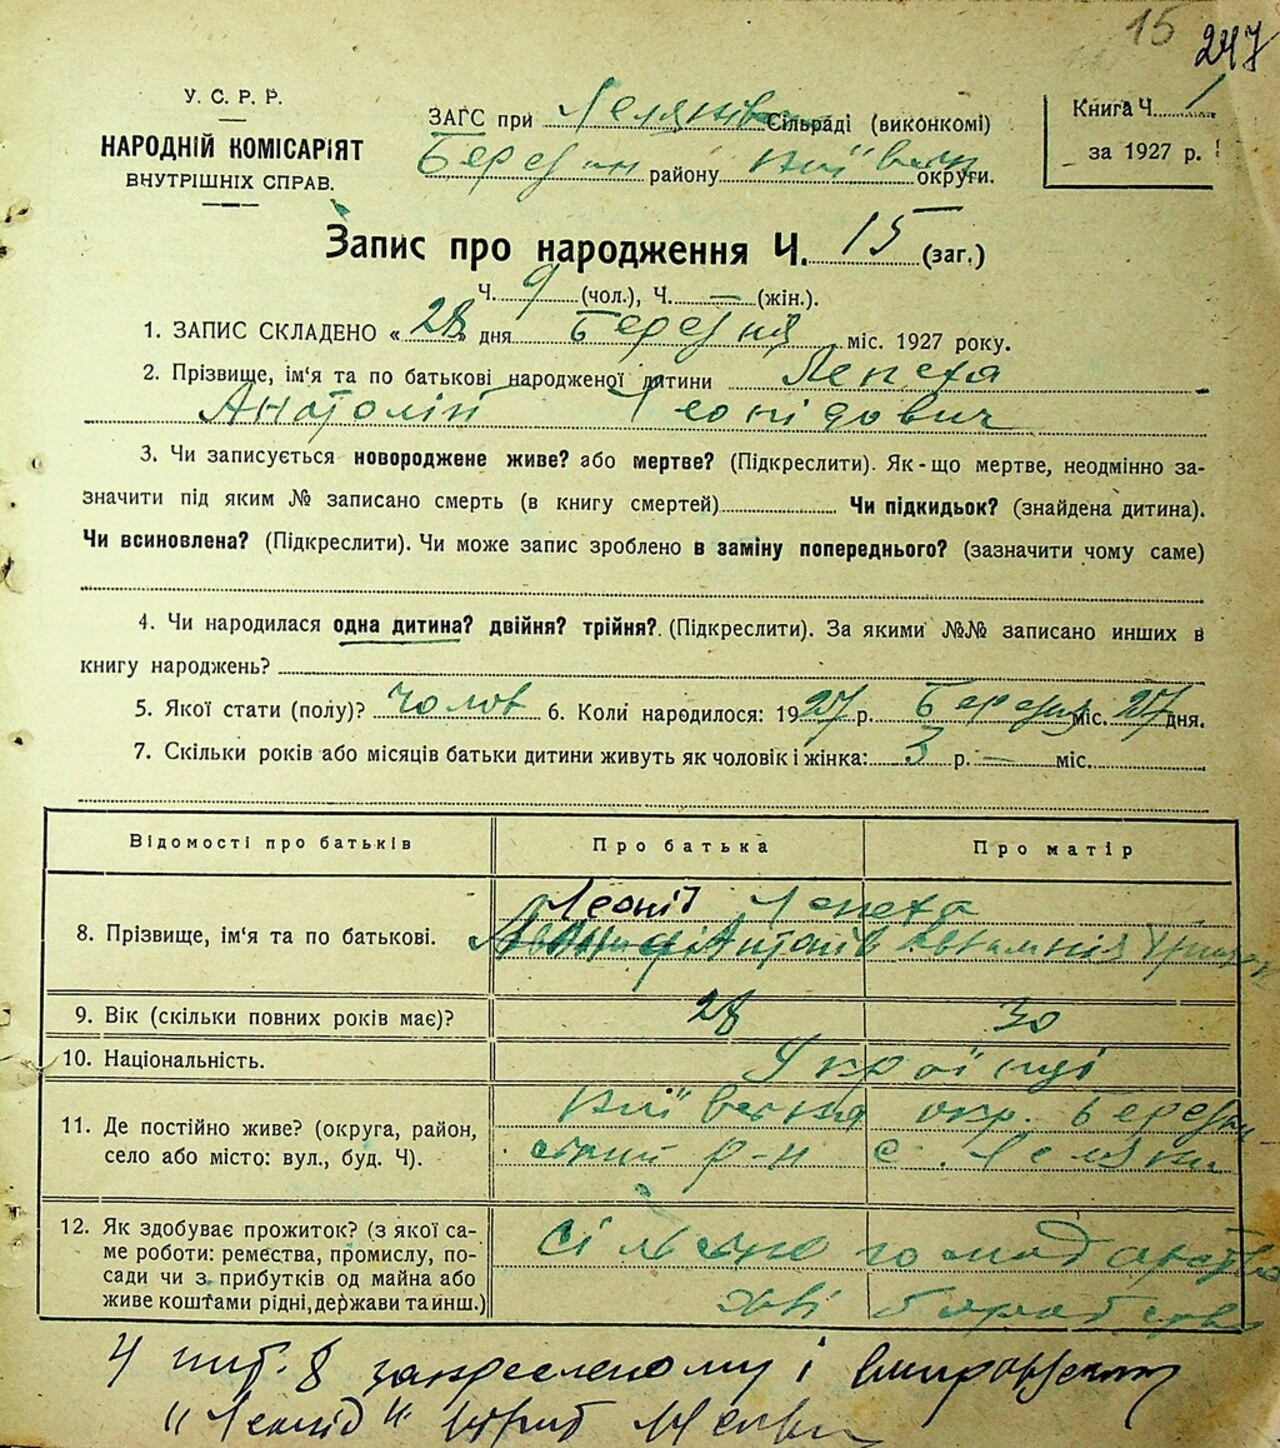 15 247
У. С. Р. Р.
НАРОДНІЙ КОМІСАРІЯТ
ВНУТРІШНІХ СПРАВ.
ЗАГС при Леляків Сільраді (виконкомі)
Березан району Київськ округи.
Книга Ч. 1
за 1927 р.
Запис про народження Ч. 15 (заг.)
Ч. 9 (чол.), Ч. — (жін.).
1. ЗАПИС СКЛАДЕНО «28» дня Березня міс. 1927 року.
2. Прізвище, ім'я та по батькові народженої дитини Лепеха
Анатолій Леонідович
3. Чи записується новороджене живе? або мертве? (Підкреслити). Як-що мертве, неодмінно за-
значити під яким № записано смерть (в книгу смертей) Чи підкидьок? (знайдена дитина).
Чи всиновлена? (Підкреслити). Чи може запис зроблено в заміну попереднього? (зазначити чому саме)
4. Чи народилася одна дитина? двійня? трійня? (Підкреслити). За якими №№ записано инших в
книгу народжень?
5. Якої стати (полу)? Чолов 6. Коли народилося: 1927 р. Березня міс. 27 дня.
7. Скільки років або місяців батьки дитини живуть як чоловік і жінка: 3 р. — міс.
Відомості про батьків Про батька Про матір
8. Прізвище, ім'я та по батькові. Леонід Лепеха
Антонів
9. Вік (скільки повних років має)? 28 30
10. Національність. Українці
11. Де постійно живе? (округа, район,
село або місто: вул., буд. Ч). Київська окр. Березан
ський р-н с. Леляки
12. Як здобуває прожиток? (з якої са-
ме роботи: ремества, промислу, по-
сади чи з прибутків од майна або
живе коштами рідні, держави та инш.) Сільсько господарство
хліборобство
У пит. 8 закресленому і
"Леонід"